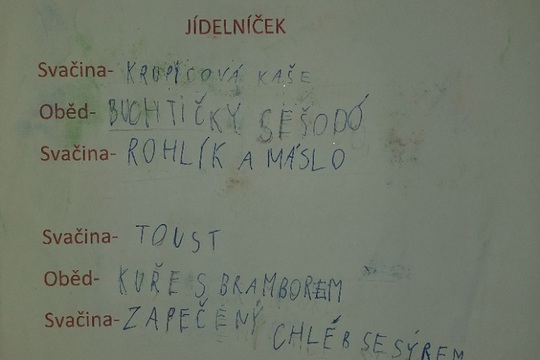 JÍDELNÍČEK
Svačina- KRUPICOVÁ KAŠE
Oběd- BUCHTIČKY SEŠODÓ
Svačina- ROHLÍK A MÁSLO
Svačina- TOUST
Oběd- KUŘE S BRAMBOREM
Svačina- ZAPEČENÝ CHLÉB SE SÝREM